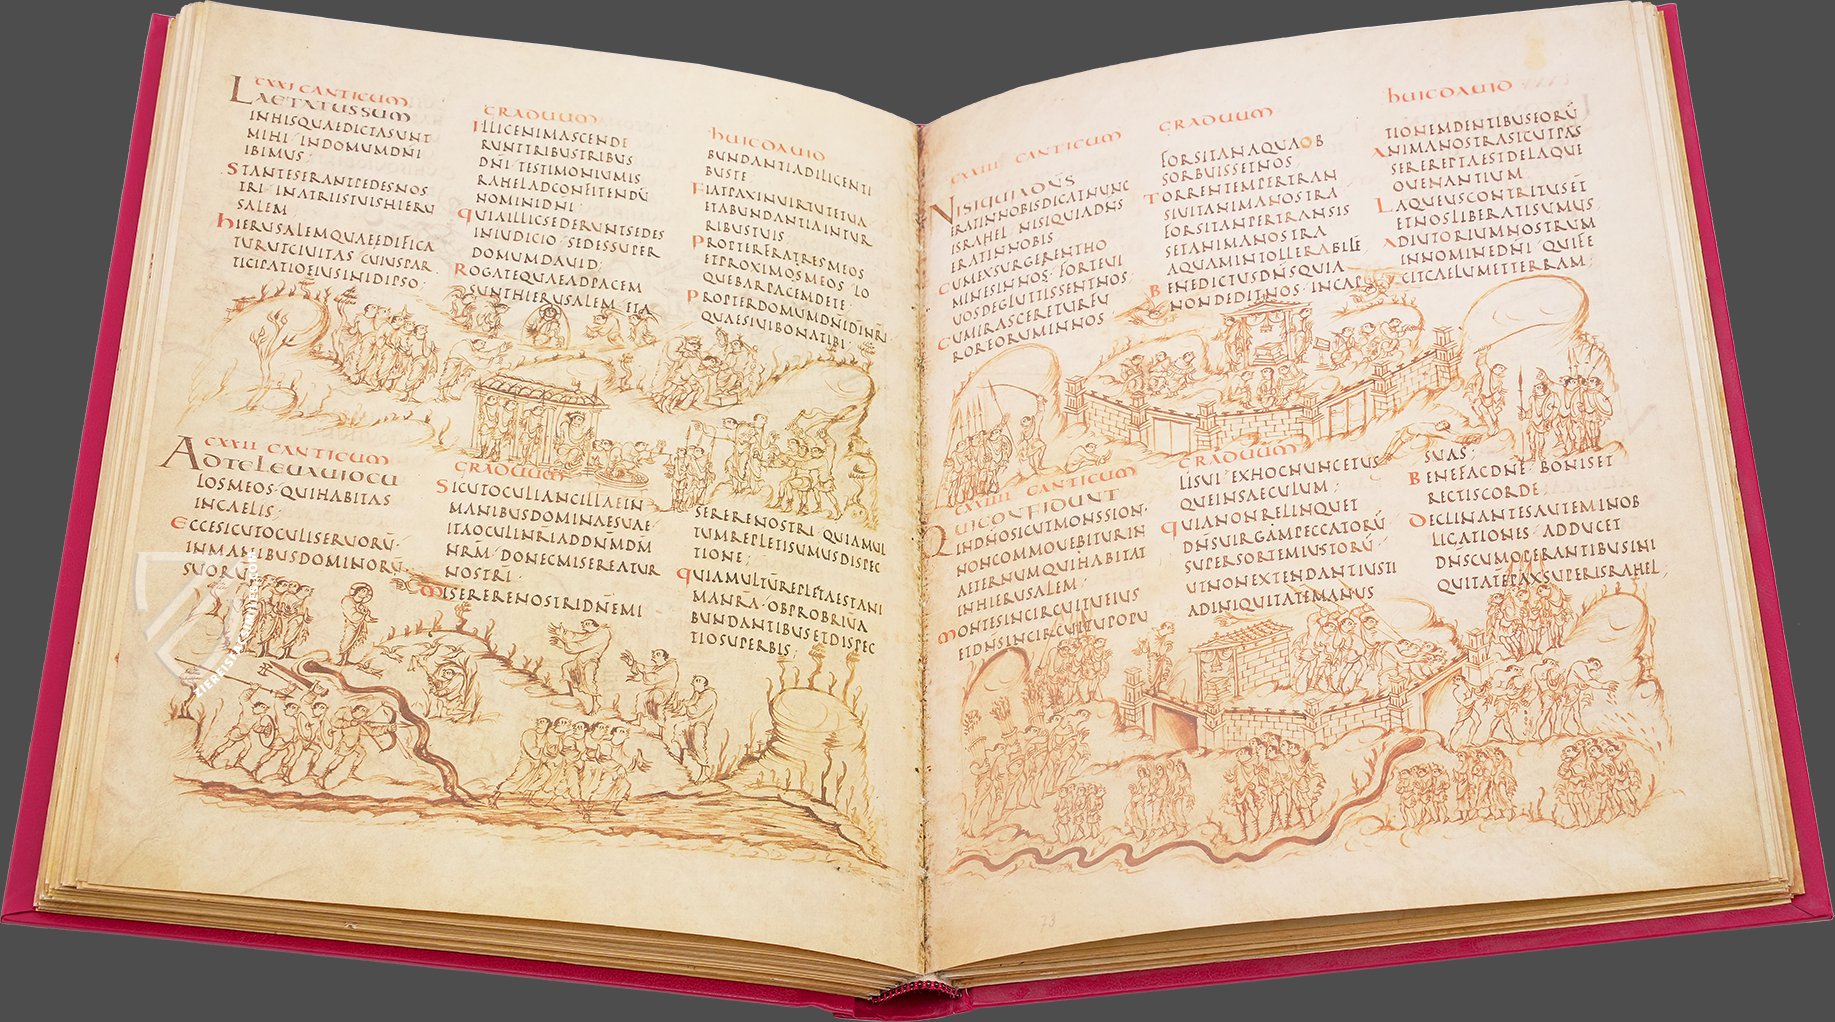 CXXI CANTICUM
LAETATUS SUM
INHISQUAEDICTASUNT
MIHI · INDOMUMDNI
IBIMUS ;
STANTESERANTPEDESNOS
TRI · INATRIISTUISHIERU
SALEM
HIERUSALEMQUAEEDIFICA
TURUTCIUITAS CUIUSPAR
TICIPATIOEIUSINIDIPSO ;
GRADUUM
ILLICENIMASCENDE
RUNTTRIBUSTRIBUS
DNI · TESTIMONIUMIS
RAHELADCONFITENDŪ
NOMINIDNI ;
QUIAILLICSEDERUNTSEDES
INIUDICIO · SEDESSUPER
DOMUMDAUID ;
ROGATEQUAEADPACEM
SUNTHIERUSALEM ETA
HUICDAUID
BUNDANTIADILIGENTI
BUSTE ·
FIATPAXINUIRTUTETUA
ETABUNDANTIAINTUR
RIBUSTUIS
PROPTERFRATRESMEOS
ETPROXIMOSMEOS LO
QUEBARPACEMDETE ·
PROPTERDOMUMDNIDINRI
QUAESIUIBONATIBI ;
CXXII CANTICUM
ADTELEUAUIOCU
LOSMEOS · QUIHABITAS
INCAELIS ;
ECCESICUTOCULISERUORŪ ·
INMANIBUSDOMINORŪ
SUORŪ
GRADUUM
SICUTOCULIANCILLAEIN
MANIBUSDOMINAESUAE ·
ITAOCULINRIADDNMDM
NRM · DONECMISEREATUR
NOSTRI ·
MISERERENOSTRIDNEMI
SERERENOSTRI · QUIAMUL
TUMREPLETISUMUSDISPEC
TIONE ;
QUIAMULTŪREPLETAESTANI
MANRA · OBPROBRIUA
BUNDANTIBUSETDISPEC
TIOSUPERBIS ;
CXXIII CANTICUM
NISIQUIADNS
ERATINNOBISDICATNUNC
ISRAHEL · NISIQUIADNS
ERATINNOBIS
CUMEXSURGERENTHO
MINESINNOS · FORTEUI
UOSDEGLUTISSENTNOS ;
CUMIRASCERETURFU
ROREORUMINNOS
GRADUUM
FORSITANAQUAOB
SORBUISSETNOS
TORRENTEMPERTRAN
SIUITANIMANOSTRA ·
FORSITANPERTRANSIS
SETANIMANOSTRA
AQUAMINTOLLERABILE
BENEDICTUSDNSQUIA
NONDEDITNOS · INCAP
HUICDAUID
TIONEMDENTIBUSEORŪ
ANIMANOSTRASICUTPAS
SEREREPTAESTDELAQUE
OUENANTIUM
LAQUEUSCONTRITUSET
ETNOSLIBERATISUMUS
ADIUTORIUMNOSTRUM
INNOMINEDNI · QUIFE
CITCAELUMETTERRAM ;
CXXIIII CANTICUM
QUICONFIDUNT
INDNOSICUTMONSSION ·
NONCOMMOUEBITURIN
AETERNUMQUIHABITAT
INHIERUSALEM ;
MONTESINCIRCUITUEIUS
ETDNSINCIRCUITUPOPU
GRADUUM
LISUI · EXHOCNUNCETUS
QUEINSAECULUM ;
QUIANONRELINQUET
DNSUIRGAMPECCATORŪ
SUPERSORTEMIUSTORŪ ·
UTNONEXTENDANTIUSTI
ADINIQUITATEMANUS
SUAS ;
BENEFACDNE · BONISET
RECTISCORDE
DECLINANTESAUTEMINOB
LIGATIONES · ADDUCET
DNSCUMOPERANTIBUSINI
QUITATEPAXSUPERISRAHEL ;
73